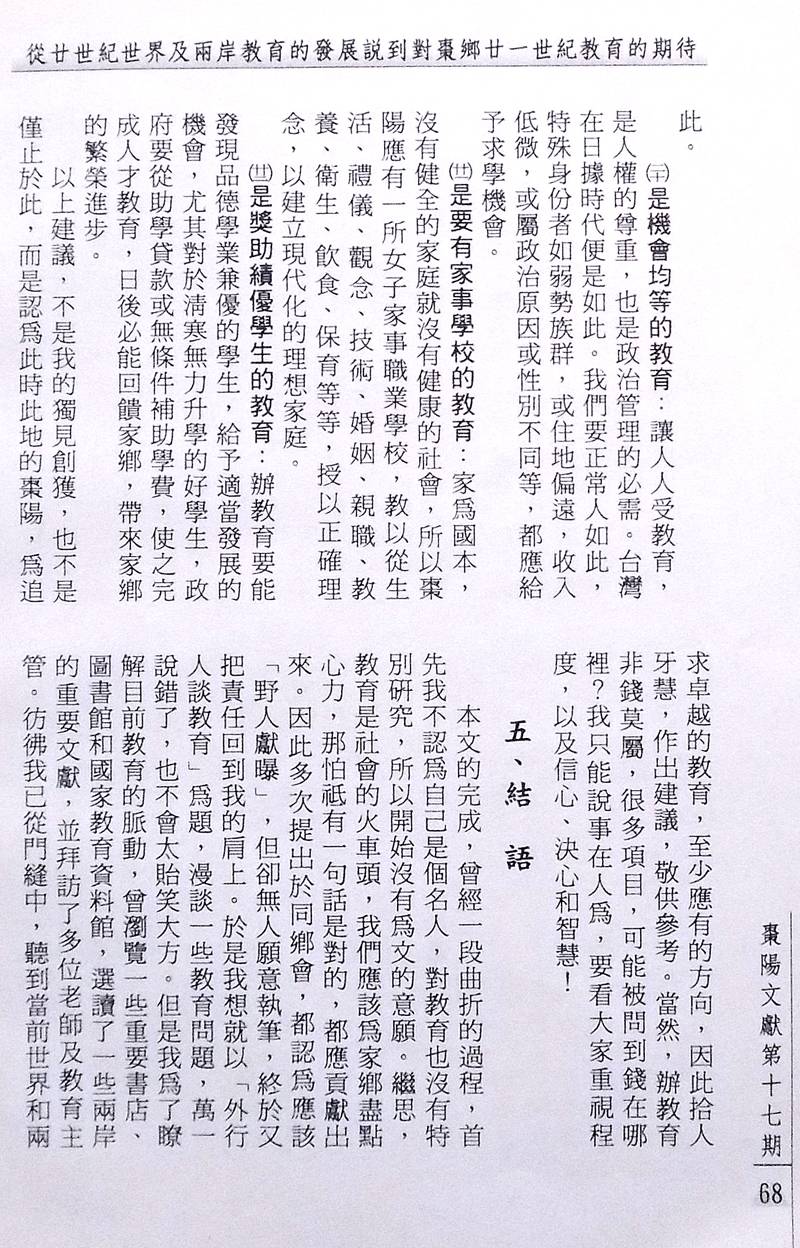 從廿世紀世界及兩岸教育的發展説到對棗鄉廿一世紀教育的期待
此。
㈩是機會均等的教育：讓人人受教育，
是人權的尊重，也是政治管理的必需。台灣
在日據時代便是如此。我們要正常人如此，
特殊身份者如弱勢族群，或住地偏遠，收入
低微，或屬政治原因或性別不同等，都應給
予求學機會。
是要有家事學校的教育：家爲國本，
沒有健全的家庭就沒有健康的社會，所以棗
陽應有一所女子家事職業學校，教以從生
活、禮儀、觀念、技術、婚姻、親職、教
養、衛生、飲食、保育等等，授以正確理
念，以建立現代化的理想家庭。
是獎助績優學生的教育：辦教育要能
發現品德學業兼優的學生，給予適當發展的
機會，尤其對於清寒無力升學的好學生，政
府要從助學貸款或無條件補助學費，使之完
成人才教育，日後必能回饋家鄉，帶來家鄉
的繁榮進步。
以上建議，不是我的獨見創獲，也不是
僅止於此，而是認爲此時此地的棗陽，爲追
求卓越的教育，至少應有的方向，因此拾人
牙慧，作出建議，敬供參考。當然，辦教育
非錢莫屬，很多項目，可能被問到錢在哪
裡？我只能說事在人爲，要看大家重視程
度，以及信心、決心和智慧！
五、結語
本文的完成，曾經一段曲折的過程，首
先我不認爲自己是個名人，對教育也沒有特
別研究，所以開始沒有爲文的意願。繼思，
教育是社會的火車頭，我們應該爲家鄉盡點
心力，那怕祗有一句話是對的，都應貢獻出
來。因此多次提出於同鄉會，都認爲應該
「野人獻曝」，但卻無人願意執筆，終於又
把責任回到我的肩上。於是我想就以「外行
人談教育」爲題，漫談一些教育問題，萬一
說錯了，也不會太貽笑大方。但是我爲了瞭
解目前教育的脈動，曾瀏覽一些重要書店、
圖書館和國家教育資料館，選讀了一些兩岸
的重要文獻，並拜訪了多位老師及教育主
管。彷彿我已從門縫中，聽到當前世界和兩
棗陽文獻第十七期
68